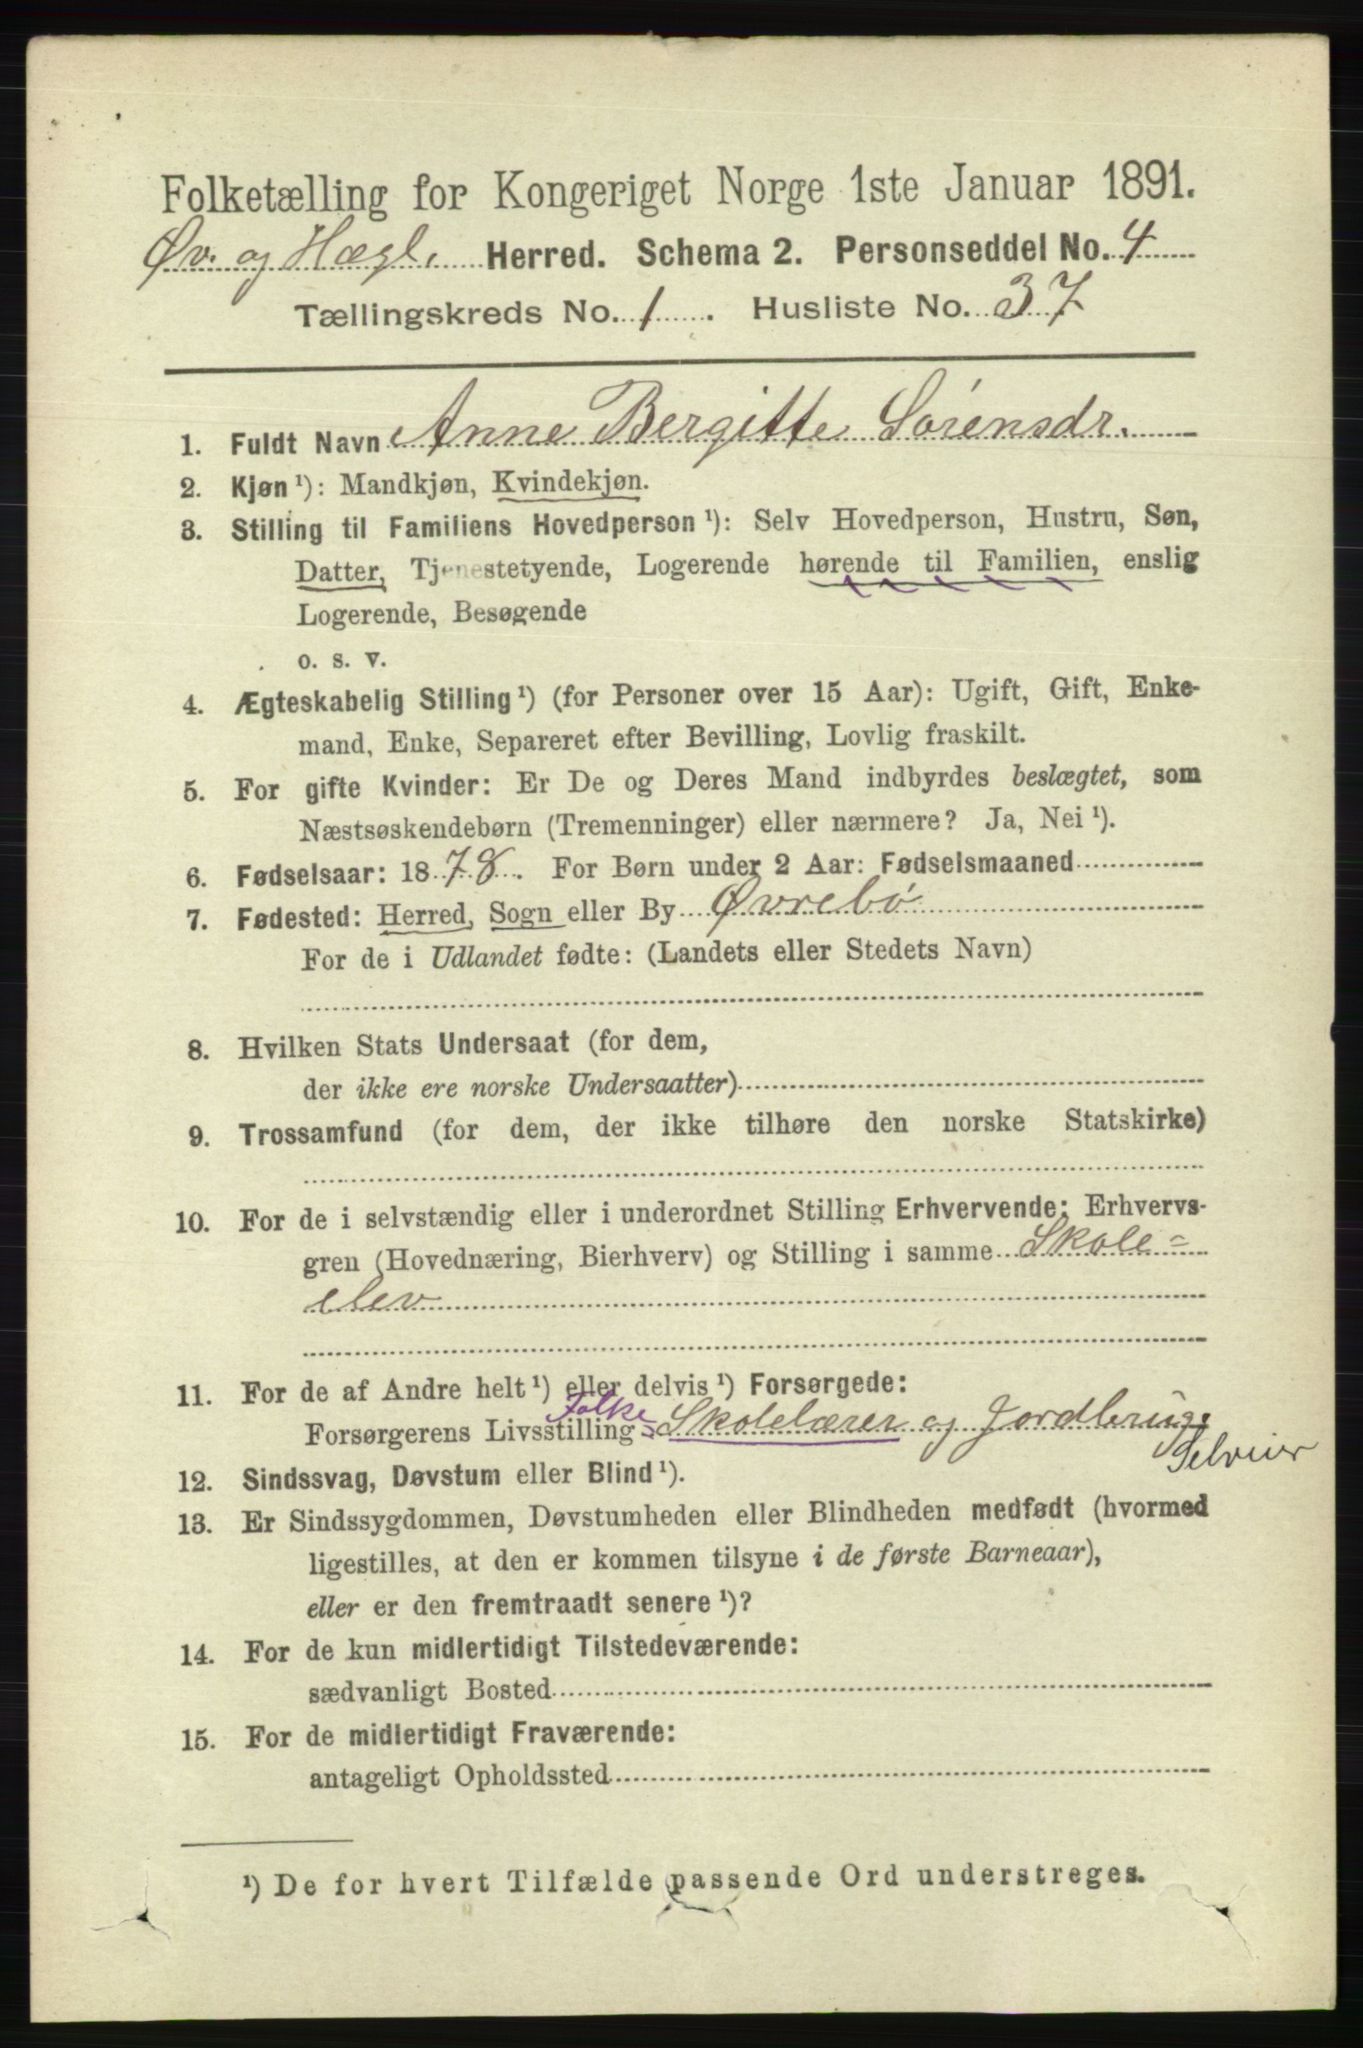 Folketælling for Kongeriget Norge 1ste Januar 1891.
Øv. og Hægl. Herred. Schema 2. Personseddel No. 4
Tællingskreds No. 1. Husliste No. 37
1. Fuldt Navn Anne Bergitte Sörensdr.
2. Kjøn ¹): Mandkjøn, Kvindekjøn.
3. Stilling til Familiens Hovedperson ¹): Selv Hovedperson, Hustru, Søn,
Datter, Tjenestetyende, Logerende hørende til Familien, enslig
Logerende, Besøgende
o. s. v.
4. Ægteskabelig Stilling ¹) (for Personer over 15 Aar): Ugift, Gift, Enke-
mand, Enke, Separeret efter Bevilling, Lovlig fraskilt.
5. For gifte Kvinder: Er De og Deres Mand indbyrdes beslægtet, som
Næstsøskendebørn (Tremenninger) eller nærmere? Ja, Nei ¹).
6. Fødselsaar: 1878. For Børn under 2 Aar: Fødselsmaaned
7. Fødested: Herred, Sogn eller By Øvrebö
For de i Udlandet fødte: (Landets eller Stedets Navn)
8. Hvilken Stats Undersaat (for dem,
der ikke ere norske Undersaatter)
9. Trossamfund (for dem, der ikke tilhøre den norske Statskirke)
10. For de i selvstændig eller i underordnet Stilling Erhvervende: Erhvervs-
gren (Hovednæring, Bierhverv) og Stilling i samme Skole=
elev
11. For de af Andre helt ¹) eller delvis ¹) Forsørgede:
Folke
Forsørgerens Livsstilling Skolelærer og Jordbrug.
Selveier
12. Sindssvag, Døvstum eller Blind ¹).
13. Er Sindssygdommen, Døvstumheden eller Blindheden medfødt (hvormed
ligestilles, at den er kommen tilsyne i de første Barneaar),
eller er den fremtraadt senere ¹)?
14. For de kun midlertidigt Tilstedeværende:
sædvanligt Bosted
15. For de midlertidigt Fraværende:
antageligt Opholdssted
¹) De for hvert Tilfælde passende Ord understreges.